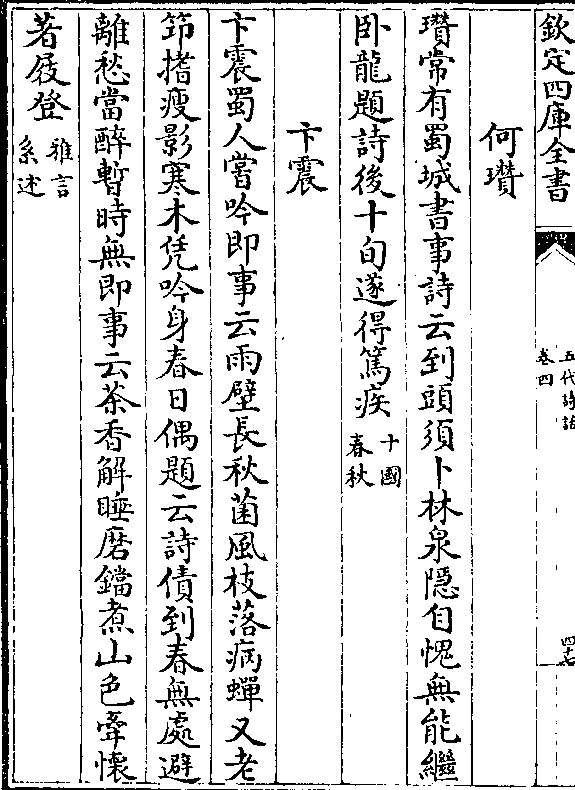 欽定四庫全書
五代詩話
卷四
四十七
何瓚
瓚常有蜀城書事詩云到頭須卜林泉隱自愧無能繼
卧龍題詩後十旬遂得篤疾十國
春秋
卞震
卞震蜀人嘗吟即事云雨壁長秋菌風枝落病蟬又老
筇揩瘦影寒木凭吟身春日偶題云詩債到春無處避
離愁當醉暫時無即事云茶香解睡磨鐺煮山色牽懷
著屐登雅言
系述